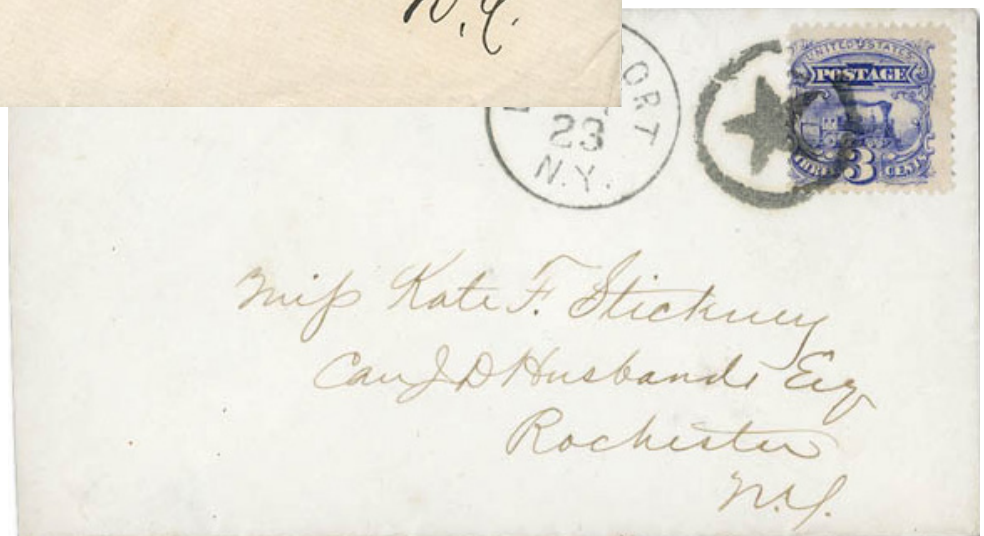 N.Y.
UNITED STATES
POSTAGE
THREE 3 CENTS
ORT
23
N.Y.
Miss Kate F. Stickney
Care J D Husbands Esq
Rochester
N.Y.